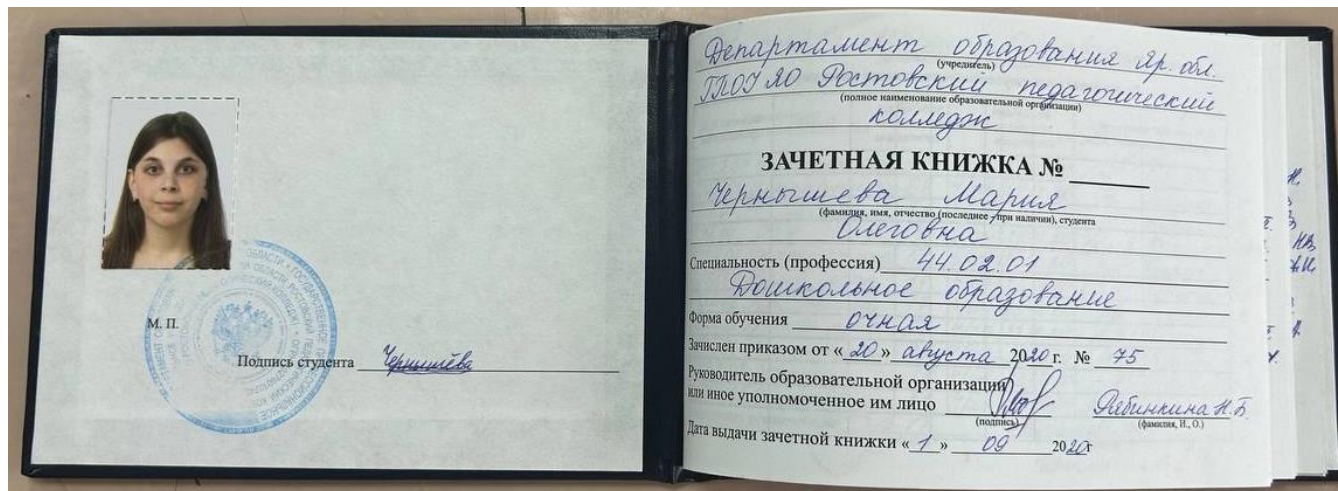 М. П.
Подпись студента Чернышёва
Департамент образования Яр. обл.
(учредитель)
ГПОУ ЯО Ростовский педагогический
(полное наименование образовательной организации)
колледж
ЗАЧЕТНАЯ КНИЖКА №
Чернышева Мария
(фамилия, имя, отчество (последнее - при наличии), студента
Олеговна
Специальность (профессия) 44.02.01
Дошкольное образование
Форма обучения очная
Зачислен приказом от « 20 » августа 2020 г. № 75
Руководитель образовательной организации
или иное уполномоченное им лицо Рябинкина Н.Б.
(подпись) (фамилия, И., О.)
Дата выдачи зачетной книжки « 1 » 09 2020г